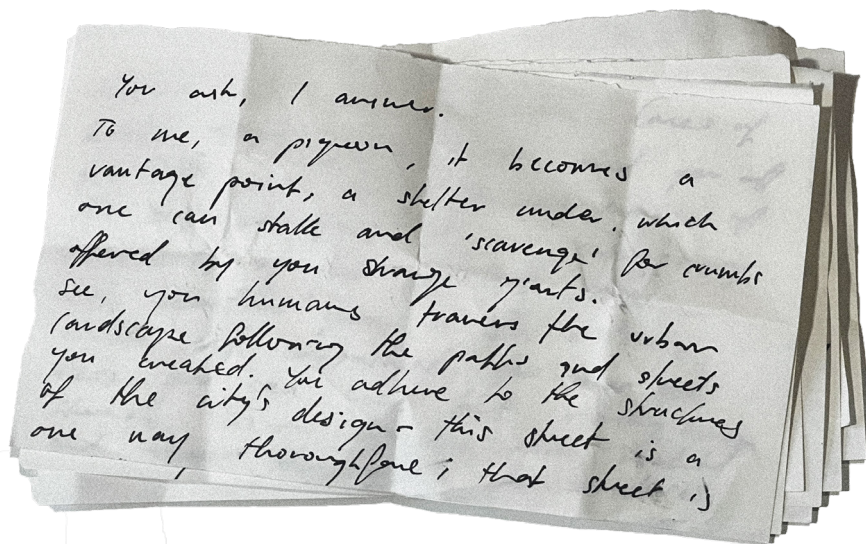 You ask, I answer.
To me, a pigeon, it becomes a
vantage point, a shelter under which
one can stalk and 'scavenge' for crumbs
offered by you strange giants.
See, you humans travers the urban
landscape following the paths and streets
you created. You adhere to the structures
of the city's design - this street is a
one way thoroughfare; that street is